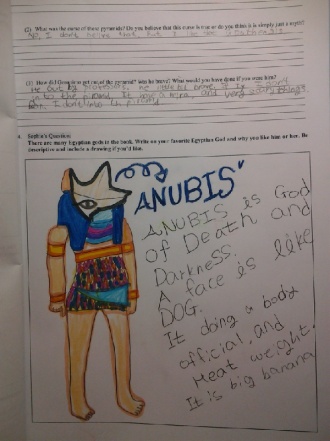 (2) What was the curse of these pyramids? Do you believe that this curse is true or do you think it is simply just a myth?
So, I don't
(3) How did Georgie to get out of the pyramid? Was he brave? What would you have done if you were him?
He out by professor, he little by brave. If I
in to the
I don't into
4. Sophia's Question:
There are many Egyptian gods in the book. Write on your favorite Egyptian God and why you like him or her. Be
descriptive and include a drawing if you'd like.
ANUBIS"
ANUBIS is God
of Death and
Darkness.
A face is like
DOG.
It doing a body
official, and
Heat weight.
It is big banana